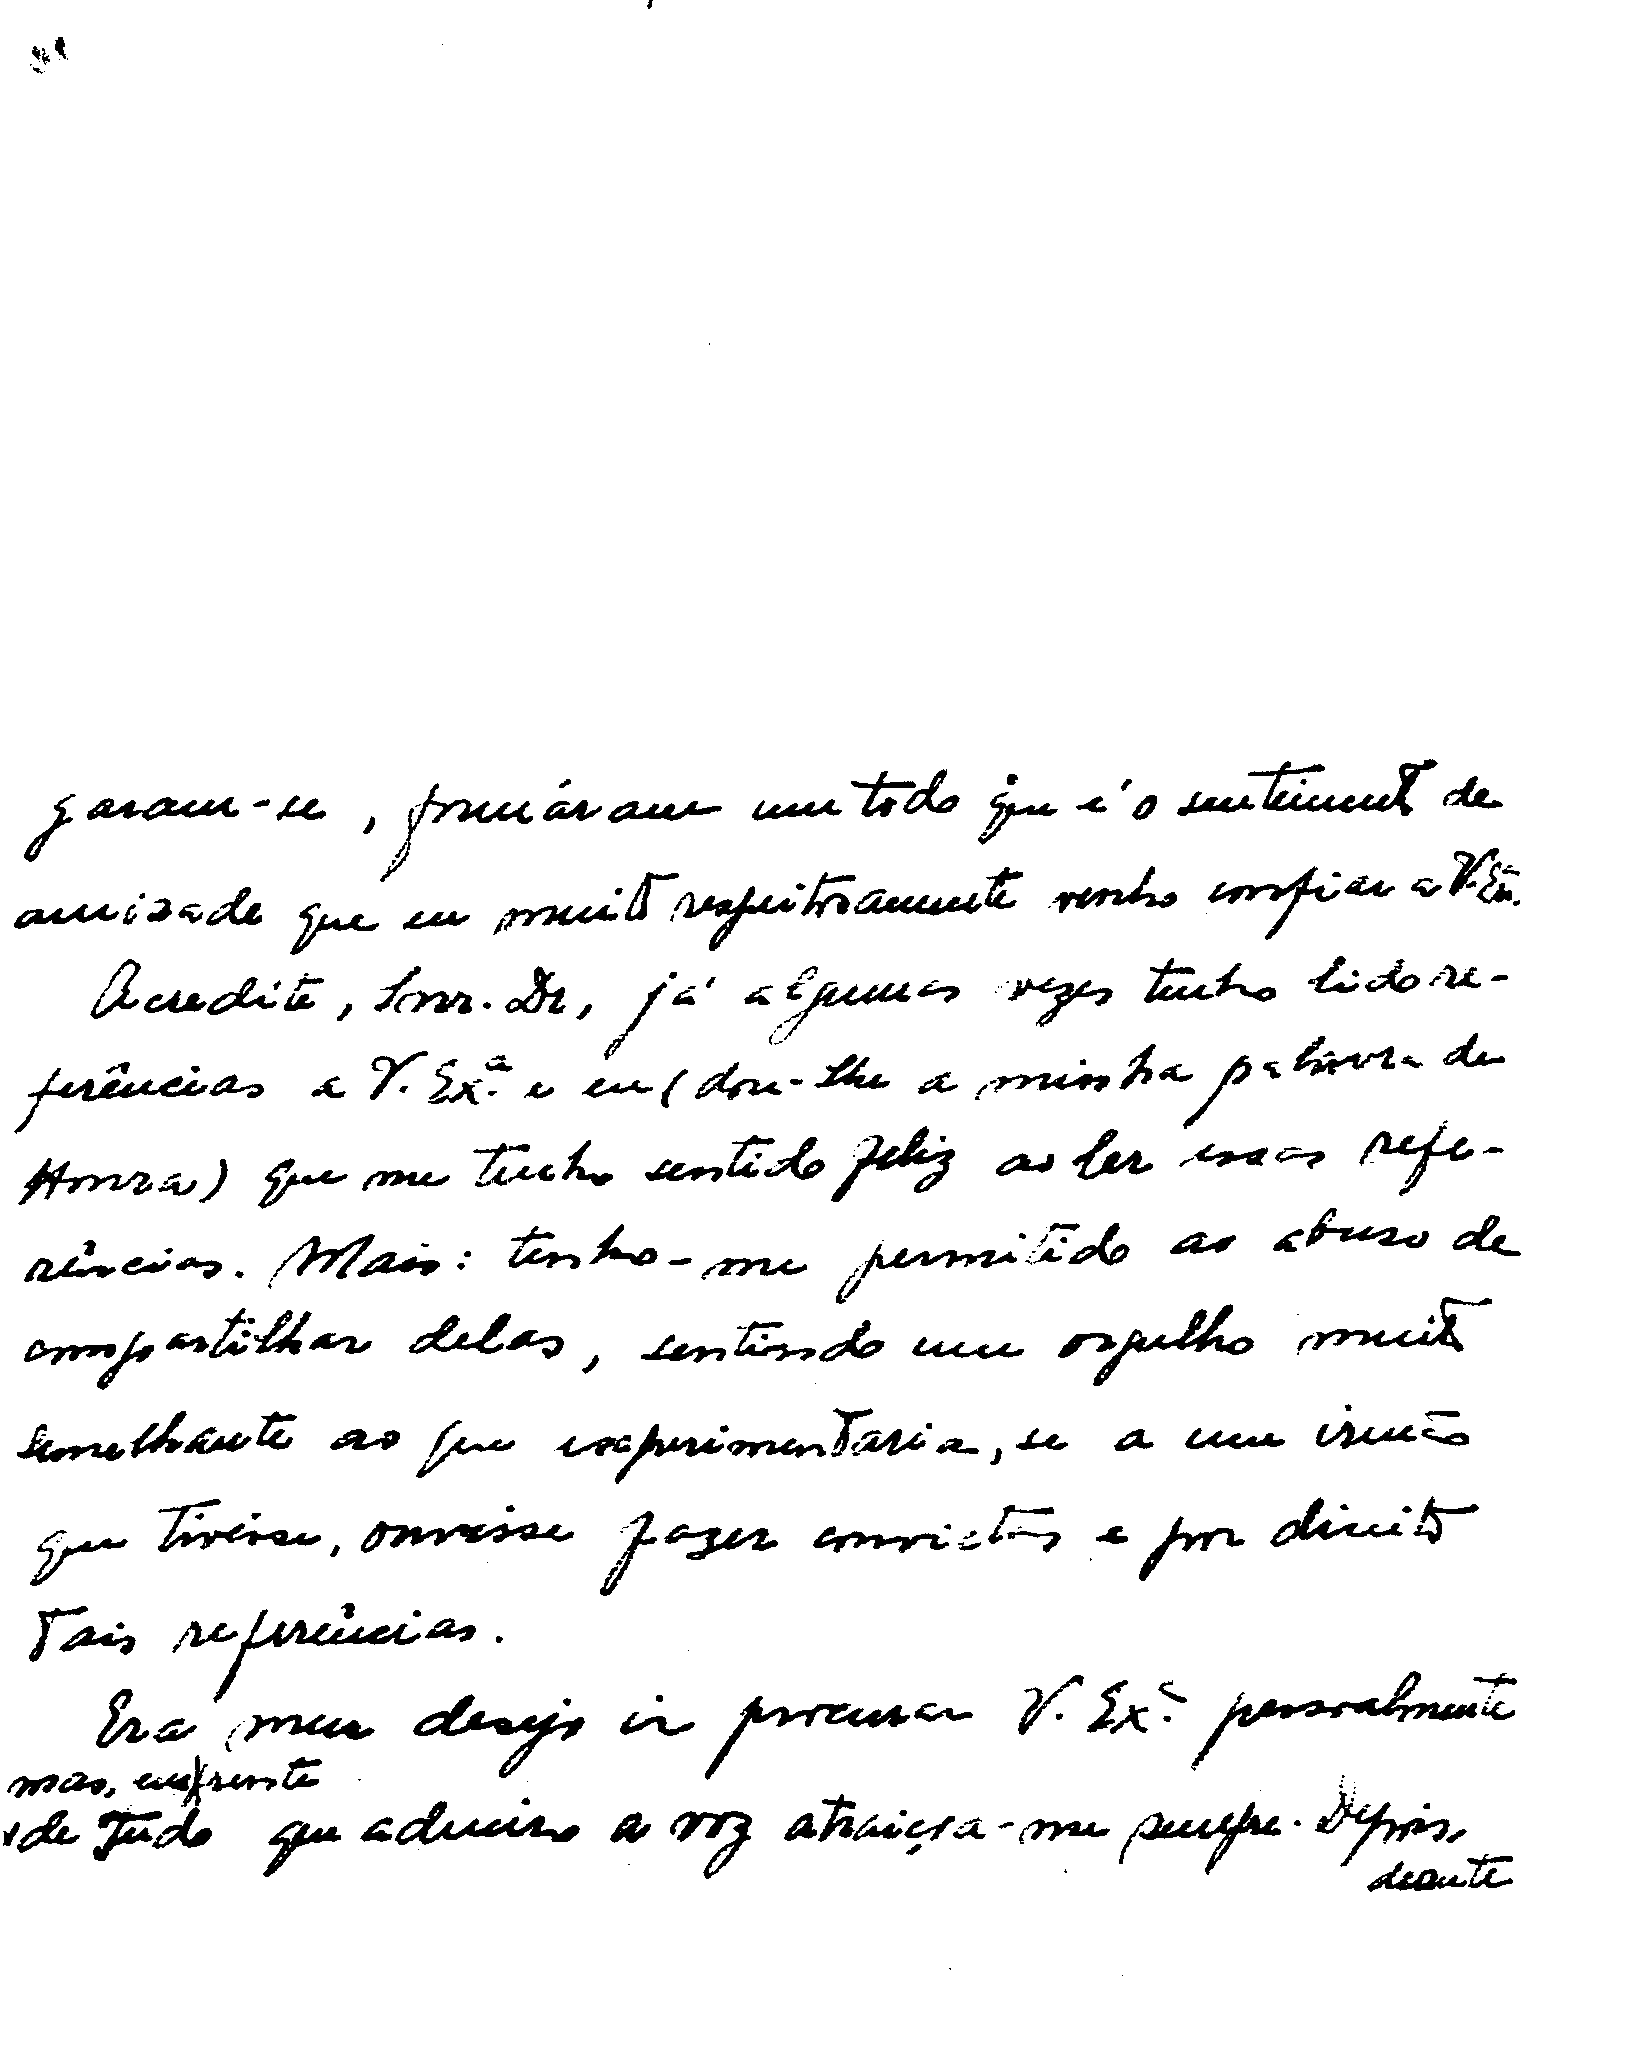 garam-se, formáram um todo que é o sentimento de
amizade que eu muito respeitosamente venho confiar a V. Ex.
Acredite, Snr. Dr, já algumas vezes tenho lido re-
ferências a V. Ex.ª e eu (dou-lhe a minha palavra de
Honra) que me tenho sentido feliz ao ler essas refe-
rências. Mais: tenho-me permitido ao abuso de
compartilhar delas, sentindo um orgulho muito
semelhante ao que experimentaria, se a um irmão
que tivésse, ouvisse fazer convictas e por direito
tais referências.
Era meu desejo ir procurar V. Ex.ª pessoalmente
mas, em frente
de tudo que admiro a voz atraiçoa-me sempre. Depois,
deante